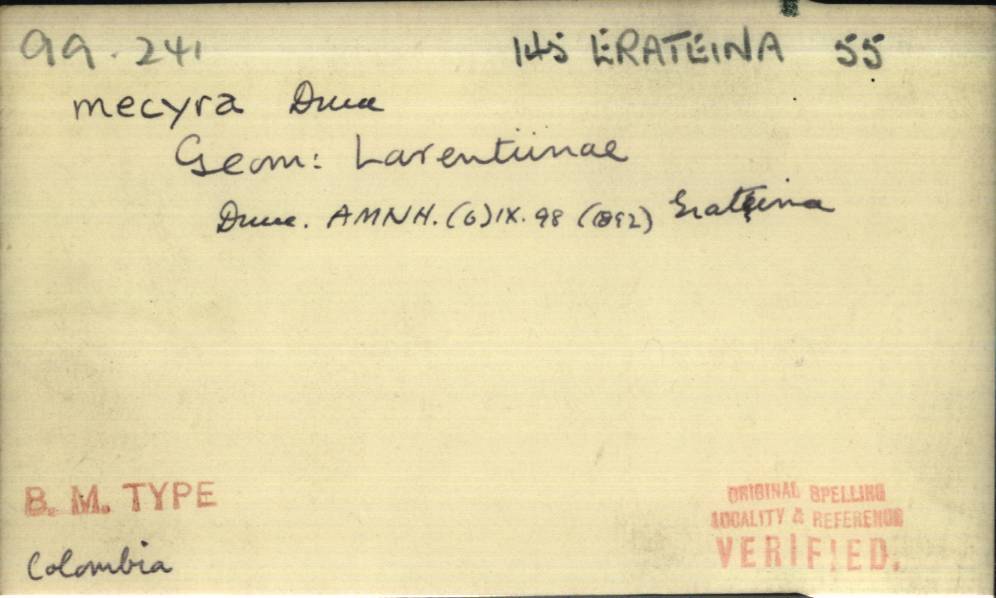 99.241 145 ERATEINA 55
mecyra Druce
Geom: Larentiinae
Druce. AMNH. (6)IX. 98 (1892) Erateina
B. M. TYPE
Colombia
ORIGINAL SPELLING
LOCALITY & REFERENCE
VERIFIED.